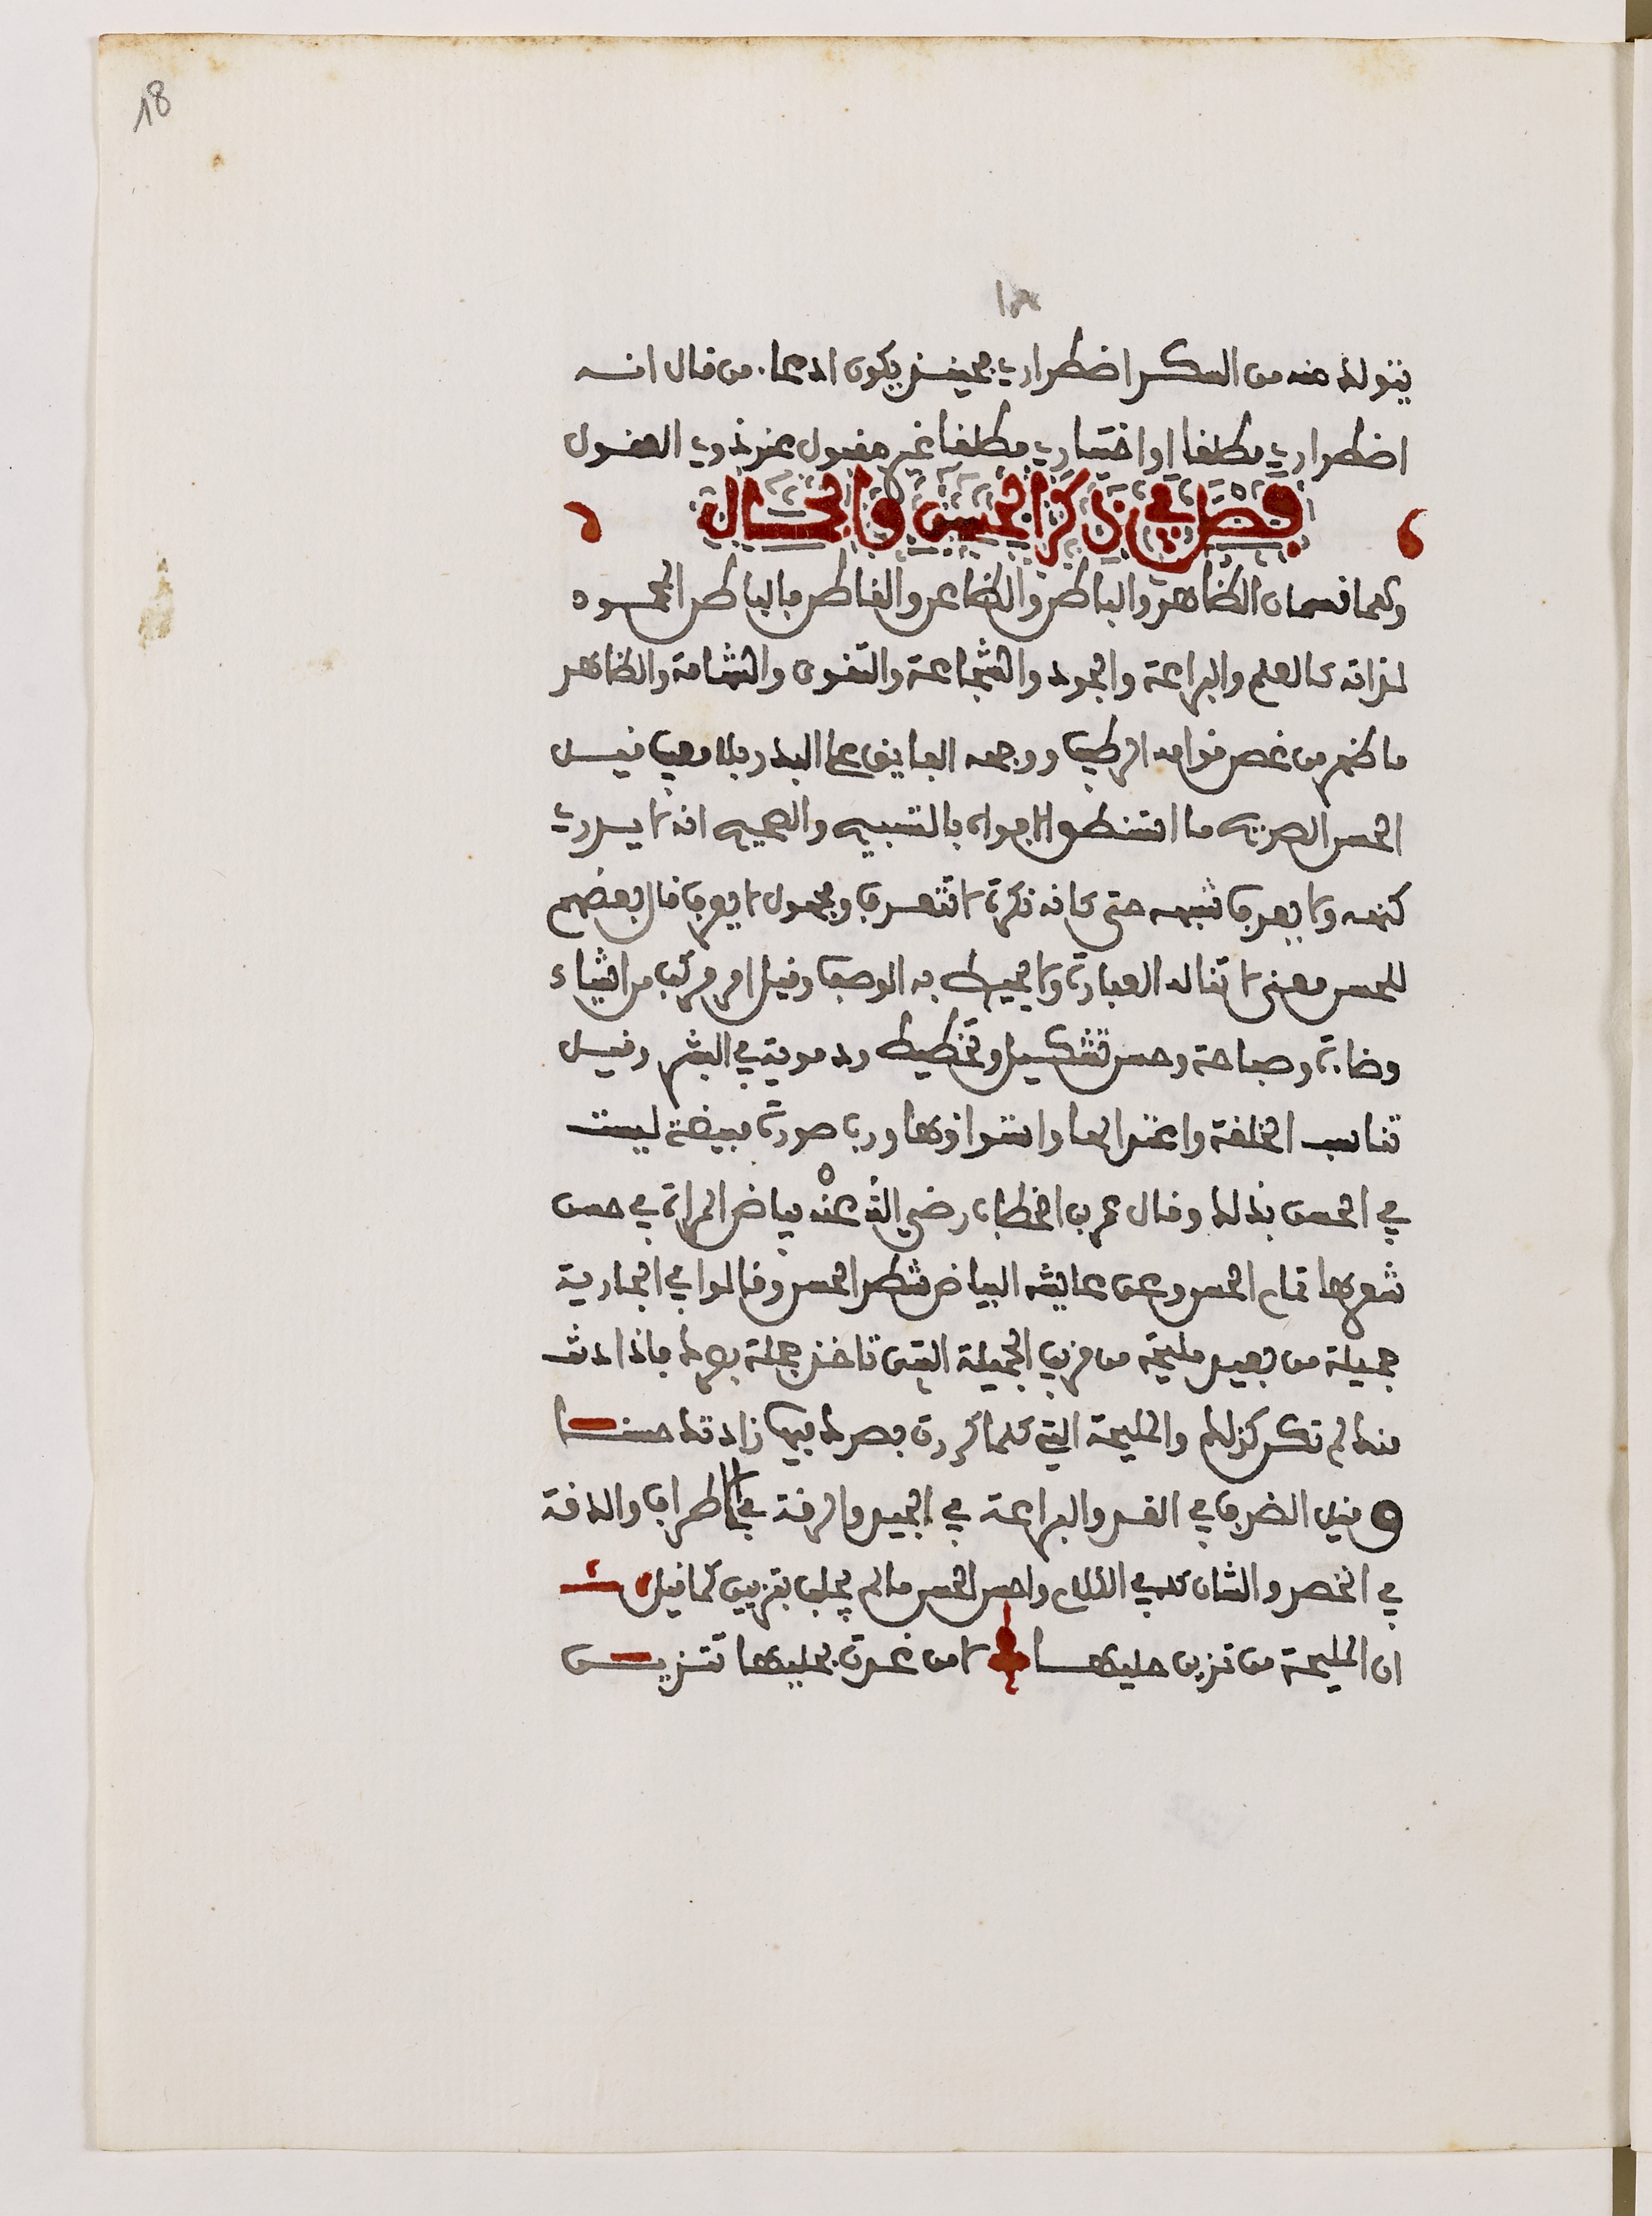 18
١٨
يتولد عنه من السكر اضطراري فحينئذ يكون ادعاء من قال انه
اضطراري مطلقا او اختياري مطلقا غير مقبول عند ذوي العقول
فصل في ذكر الحسن والجمال
وهما قسمان الظاهر والباطن والظاعن والقاطن فالباطن المحمود
لذاته كالعلم والبراعة والجود والشجاعة والتقوى والشهامة والظاهر
ما ظهر من غصن قوامه الرطيب ووجهه الفايق على البدر بلا مغيب قيل
الحسن الصريح ما استنطق الافواه بالتسبيح والصحيح انه لا يدرى
كنهه ولا يعرف شبهه حتى كانه نكرة لا تتعرف ومجهول لا يعرف قال بعضهم
للحسن معنى لا تناله العبارة ولا يحيط به الوصف وقيل امر مركب من اشياء
وضاءة وصباحة وحسن تشكيل وتخطيط ودموية في البشرة وقيل
تناسب الخلقة واعتدالها واستواؤها ورب صورة مبيضة ليست
في الحسن بذلك وقال عمر بن الخطاب رضي الله عنه بياض المراة في حسن
شعرها تمام الحسن وعن عايشه البياض شطر الحسن وقالوا في الجارية
جميلة من بعيد مليحة من قريب الجميلة التي تاخذ جملة بصرك فاذا دنت
منك لم تكن كذلك والمليحة التي كلما كررت بصرك فيها زادتك حسنا
وقيل الظرف في القد والبراعة في الجيد والرقة في الاطراف والدقة
في الخصر والشان كله في الكلام واحسن الحسن ما لم يجلب بتزيين كما قيل
ان المليحة من تزين حليها لا من غدت بحليها تتزين